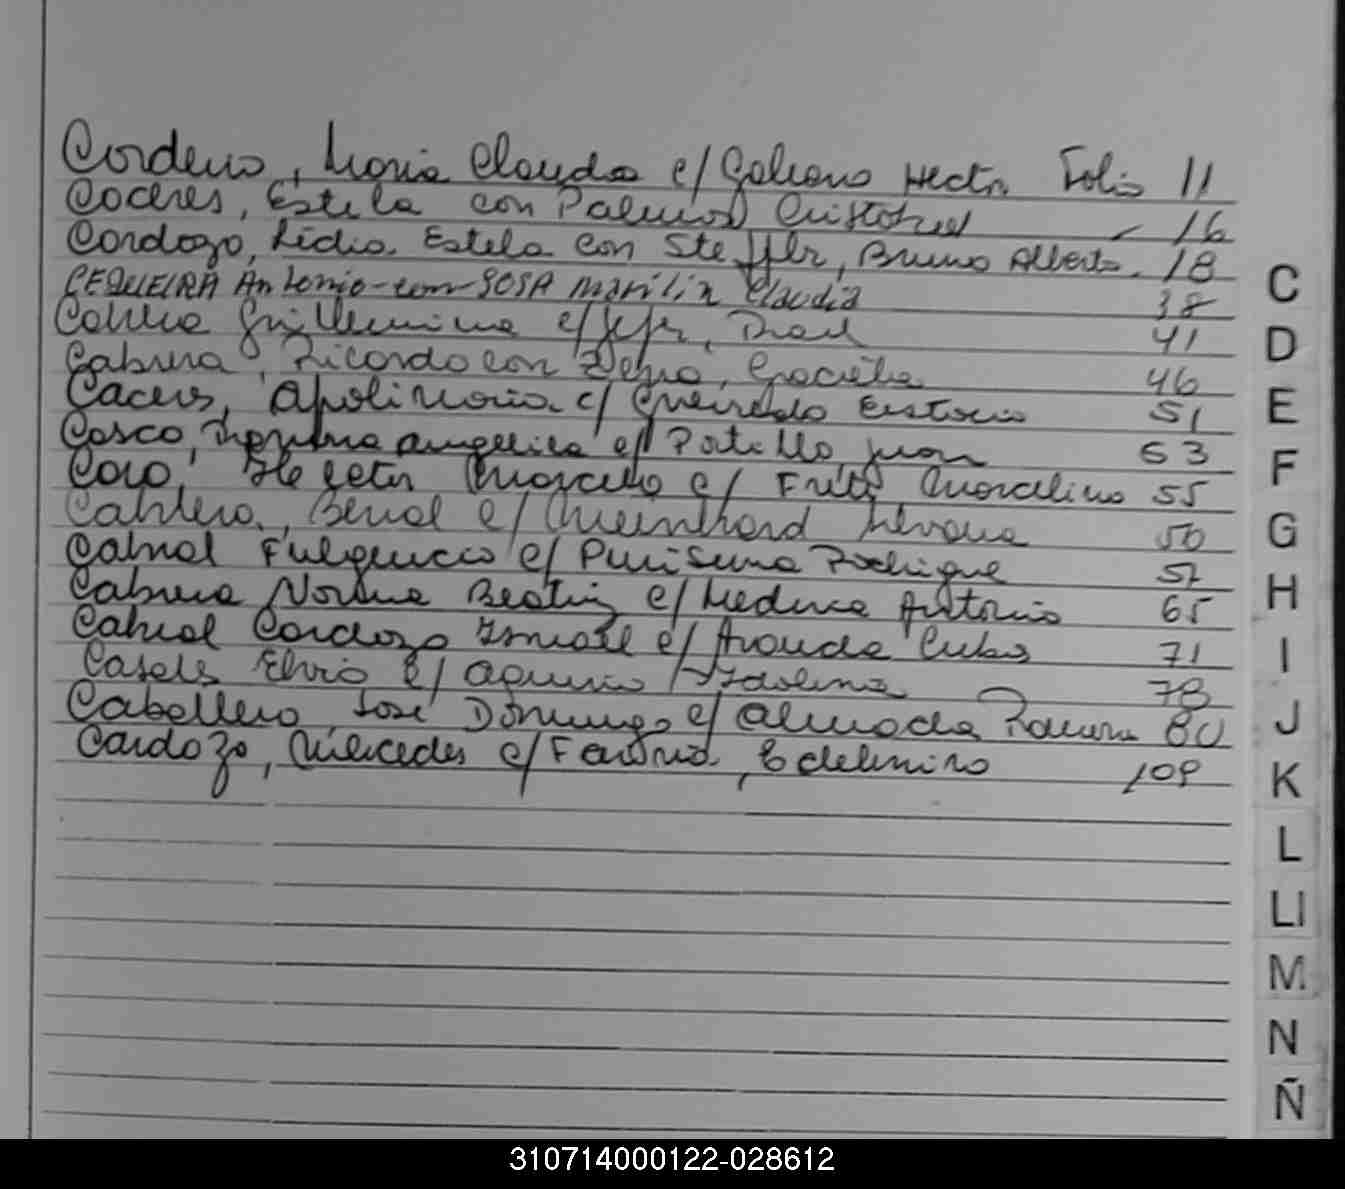 Cordero, Maria Claudia c/ Galeano Hector Folio 11
Caceres, Estela con Palacios Cristobal - 16
Cardozo, Lidia Estela Con Steffler, Bruno Alberto. 18
CEQUEIRA Antonio-con-SOSA Marilin Claudia 38
Cabrera Guillermina c/ 41
Cabrera, Ricardo con Graciela 46
Caceres, Apolinaria c/ Eustacio 51
Casco, Angelica c/ Portillo, Juan 53
Caro, Marcelo c/ Fritz Marcelino 55
c/ Meinhard Silvana 50
Cabral Fulgencio c/ Purisima Rodrigue 57
Cabrera Norma Beatriz c/ Medina Antonio 65
Cabral Cardozo Ismael c/ Aranda 71
Casals Elvio c/ Aquino Idolina 78
Caballero, José Domingo c/ Almada Ramona 80
Cardozo, Mercedes c/ Edelmiro 109
C
D
E
F
G
H
I
J
K
L
Ll
M
N
Ñ
310714000122-028612